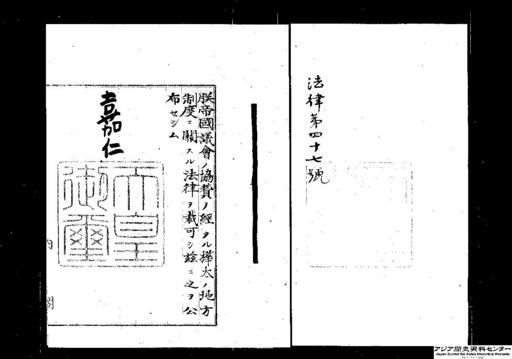 法律第四十七號
朕帝國議會ノ協賛ヲ經タル樺太ノ地方
制度ニ關スル法律ヲ裁可シ茲ニ之ヲ公
布セシム
嘉仁
天皇
御璽
内
閣
アジア歴史資料センター
Japan Center for Asian Historical Records